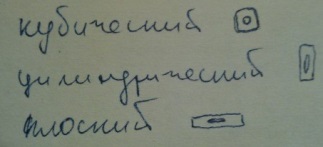 кубический
цилиндрический
плоский